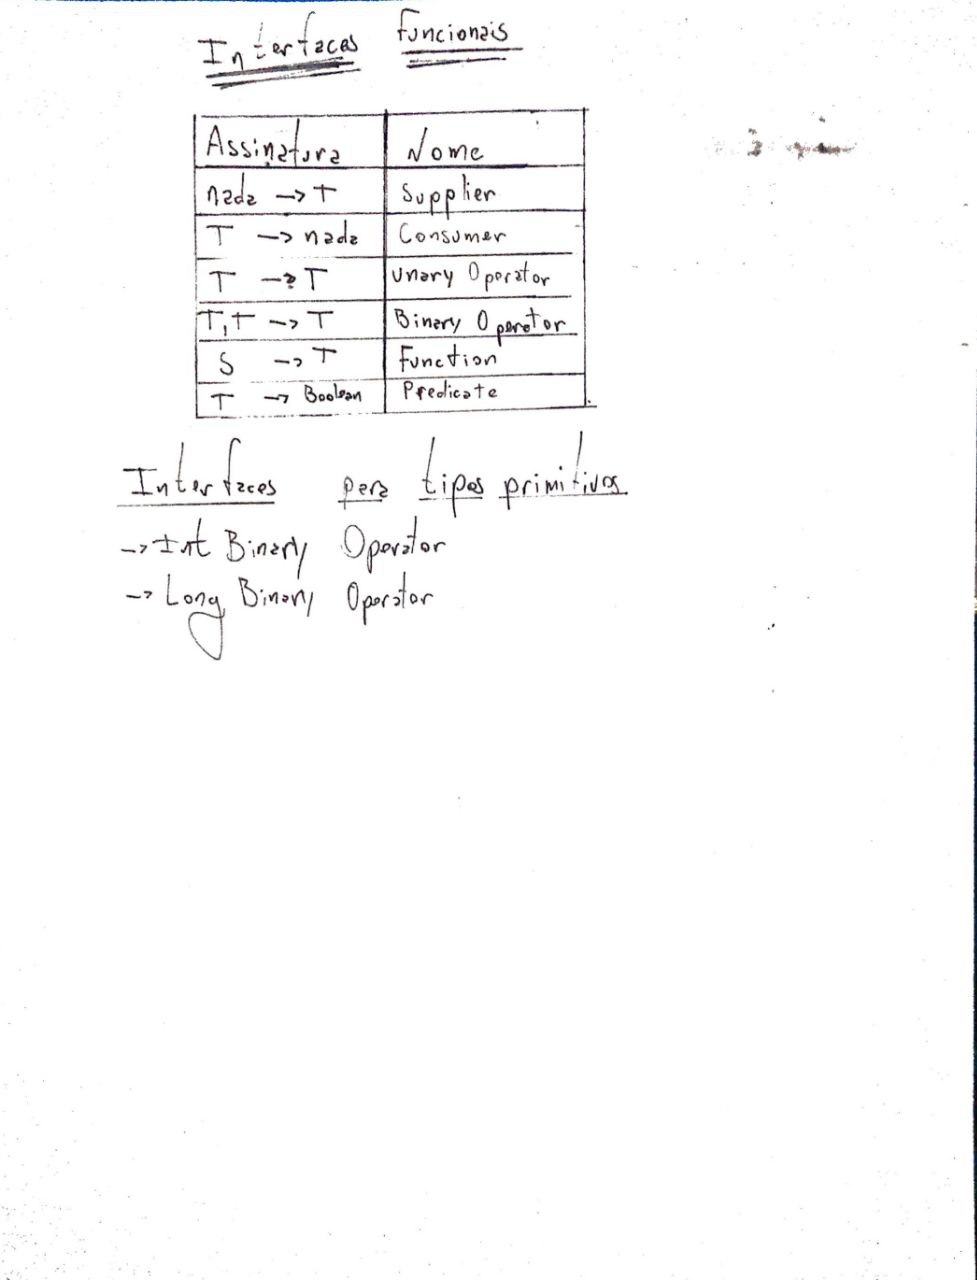 Interfaces Funcionais
Assinatura Nome
nada -> T Supplier
T -> nada Consumer
T -> T Unary Operator
T, T -> T Binary Operator
S -> T Function
T -> Boolean Predicate
Interfaces para tipos primitivos
-> Int Binary Operator
-> Long Binary Operator